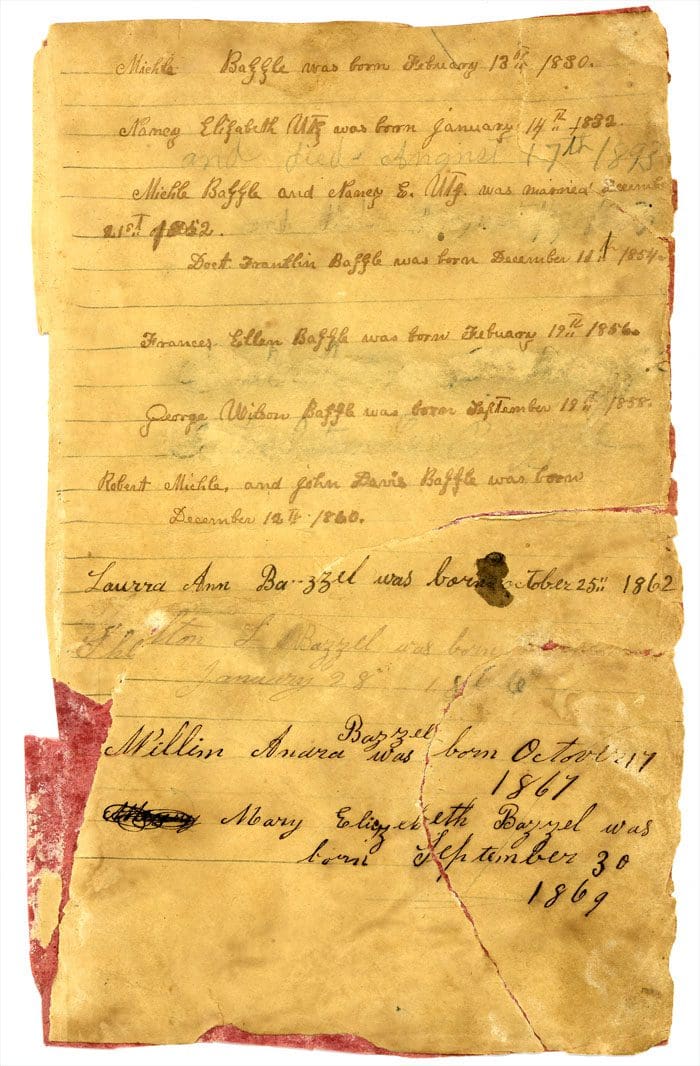 Michle Bazzle was born February 13th 1830.
Nancy Elizabeth Utz was born January 14th 1832.
and died August 17th 1893
Michle Bazzle and Nancy E. Utz. was married Decembe
21st 1852.
Doct. Franklin Bazzle was born December 11th 1854
Frances Ellen Bazzle was born Febuary 19th 1856
George Wilson Bazzle was born September 19th 1858.
Robert Michle, and John Davis Bazzle was born
December 12th 1860.
Laurra Ann Bazzel was born october 25th 1862
L Bazzel was born
January 28
Willim Andra Bazzel was born Octover 17
1867
Mary Elizebeth Bazzel was
born September 30
1869